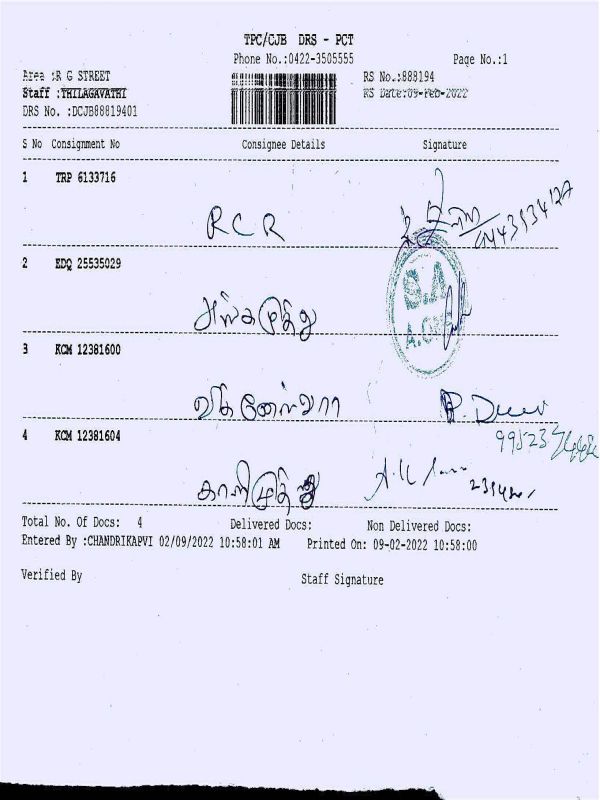 TPC/CJB DRS - PCT
Phone No.:0422-3505555 Page No.:1
Area :R G STREET RS No.:888194
Staff :THILAGAVATHI RS Date:09-Feb-2022
DRS No. :DCJB88819401
S No Consignment No Consignee Details Signature
1 TRP 6133716
RCR
2 EDQ 25535029
அங்கமுத்து
3 KCM 12381600
விக்னேஸ்வரா
4 KCM 12381604
காளிமுத்து
Total No. Of Docs: 4 Delivered Docs: Non Delivered Docs:
Entered By :CHANDRIKAPVI 02/09/2022 10:58:01 AM Printed On: 09-02-2022 10:58:00
Verified By Staff Signature